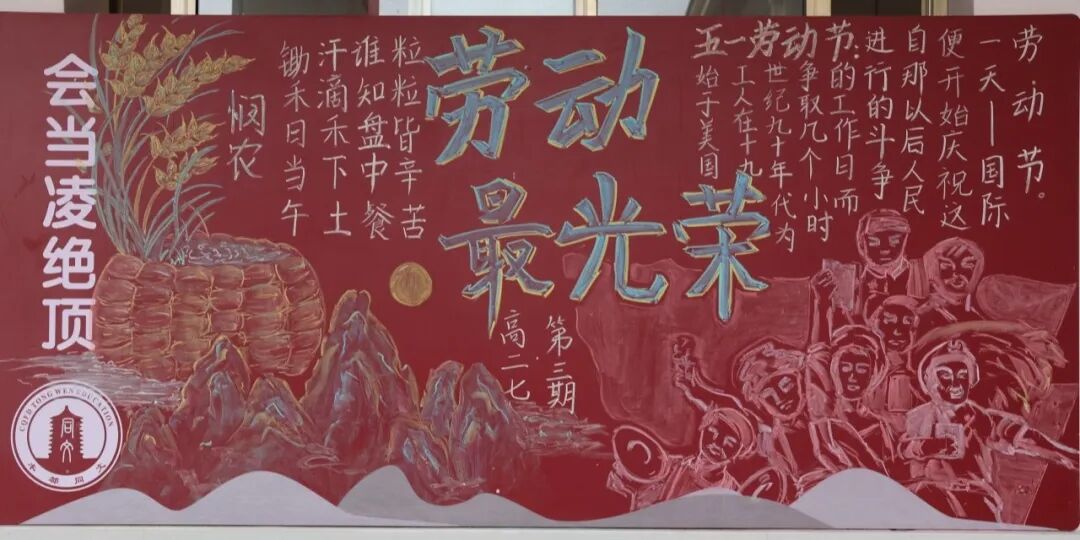 会当凌绝顶
TONG WEN EDUCATION
同文
悯农
锄禾日当午
汗滴禾下土
谁知盘中餐
粒粒皆辛苦
劳动
最光荣
高二七
第三期
五一劳动节:
始于美国
工人在十九
世纪九十年代为
争取几个小时
的工作日而
进行的斗争
自那以后人民
便开始庆祝这
一天——国际
劳动节。